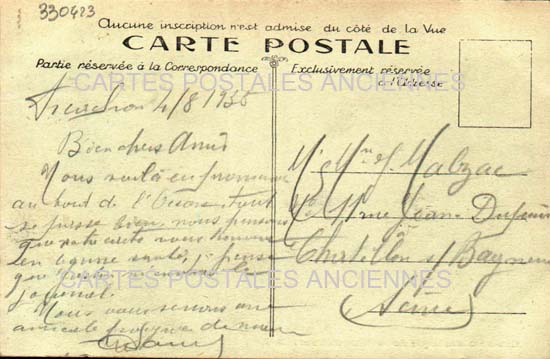 330423
Aucune inscription n'est admise du côté de la Vue
CARTE POSTALE
Partie réservée à la Correspondance
Exclusivement réservée
à l'Adresse
CARTES POSTALES ANCIENNES
4/8/1938
Bien chers Amis
Nous voilà en promenade
au bord de l'Océan tout
se passe bien, nous pensons
que notre carte vous trouvera
en bonne santé, je pense
que
journal.
Nous vous serrons une
amicale poignée de main
Mr Mme J. Malzac
Jean
Châtillon s/ Bagneux
(Seine)
CARTES POSTALES ANCIENNES